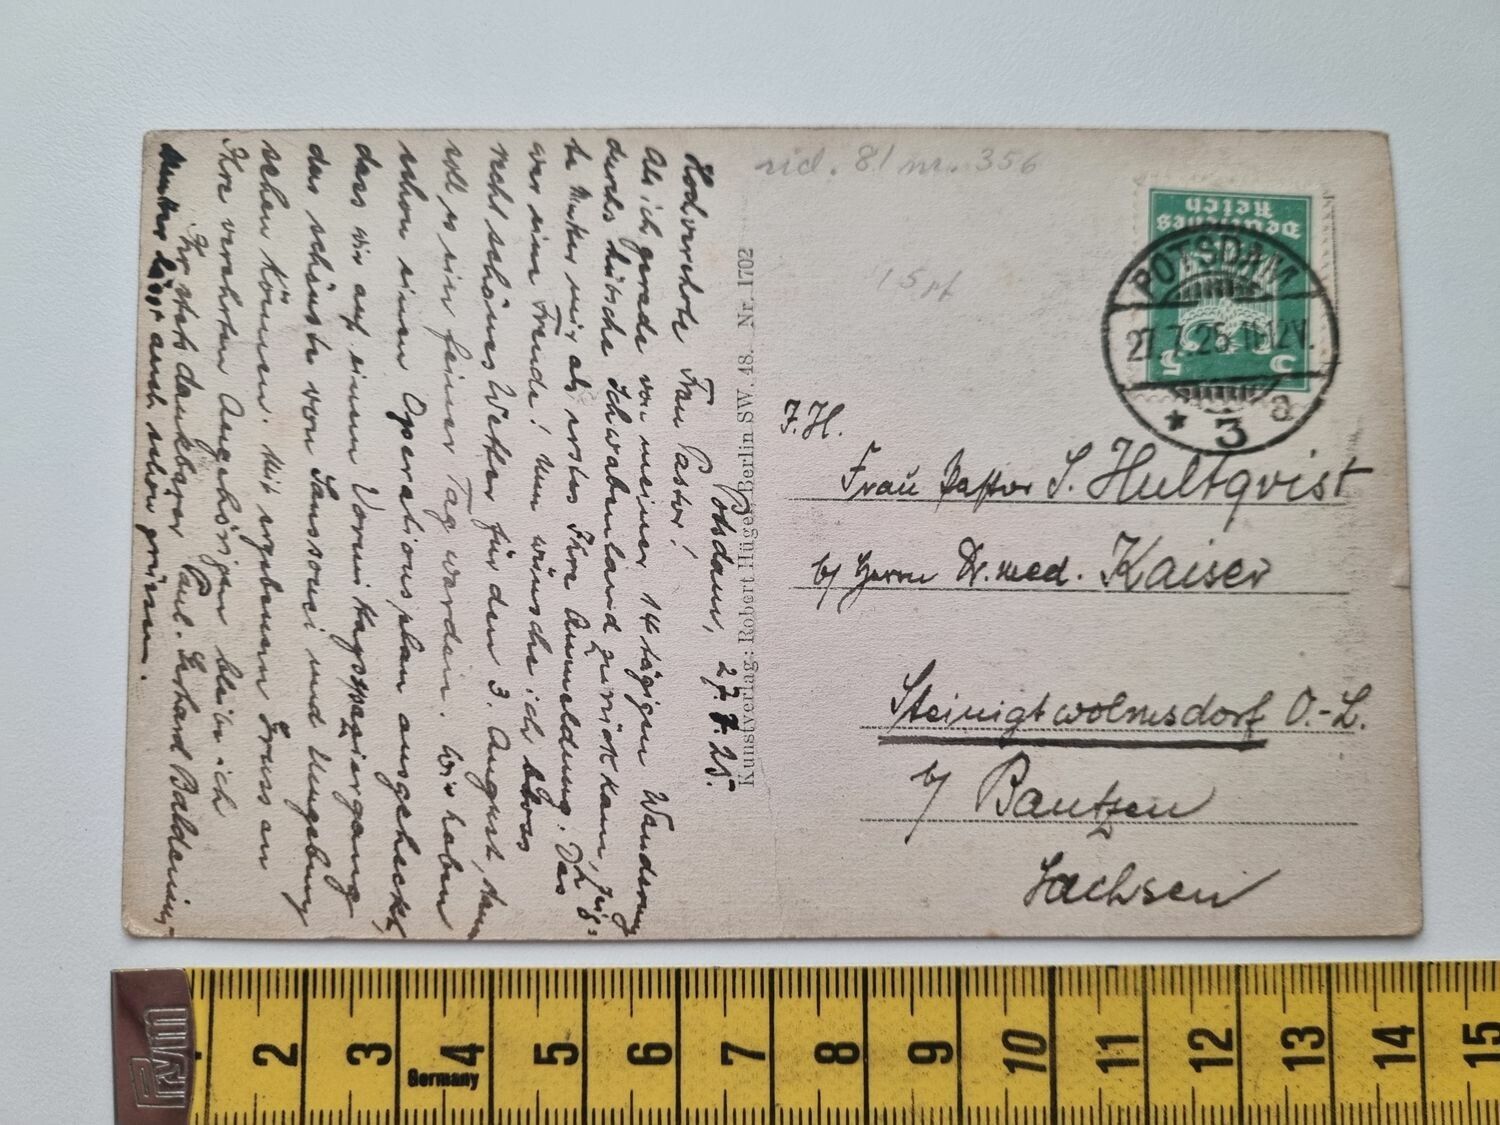 Potsdam, 27.7.25.
Hochverehrte Frau Pastor!
Als ich gerade von meiner 14 tägigen Wanderung
durchs hübsche Schwabenland zurück kam, zeig=
te Mutter mir als erstes Ihre Anmeldung. Das
war eine Freude! Nun wünsche ich bloss
recht schönes Wetter für den 3. August, dann
soll es ein feiner Tag werden. Wir haben
schon einen Operationsplan ausgeheckt,
dass wir auf einem Vormittagsspaziergang
das schönste von Sanssouci und Umgebung
sehen können. Mit ergebenem Gruss an
Ihre verehrten Angehörigen bleibe ich
Ihr stets dankbarer Paul. Gerhard
Mutter lässt auch schön grüssen.
Kunstverlag: Robert Hüger, Berlin SW. 48. Nr. 1702
rid. 81 nr. 356
15 pf
Deutsches
Reich
5 5
POTSDAM
27.7.25.11-12V.
* 3 a
I. H.
Frau Pastor S. Hultqvist
b/ Herrn Dr. med. Kaiser
Steinigtwolmsdorf O.-L.
b/ Bautzen
Sachsen
Prym
2 3 4 5 6 7 8 9 10 11 12 13 14 15
Germany